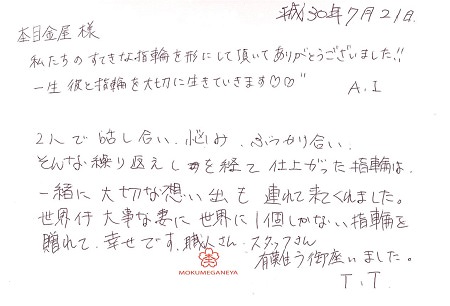 平成30年7月21日.
杢目金屋 様
私たちの すてきな指輪を形にして頂いてありがとうございました!!
一生 彼と指輪を大切に生きていきます♡♡"
A.I
2人で 話し合い、悩み、ぶつかり合い、
そんな繰り返えしを経て 仕上がった指輪は、
一緒に 大切な想い出も 連れて来てくれました。
世界一 大事な妻に 世界に1個しかない指輪を
贈れて、幸せです。職人さん、スタッフさん
有難う御座いました。
T.T
MOKUMEGANEYA